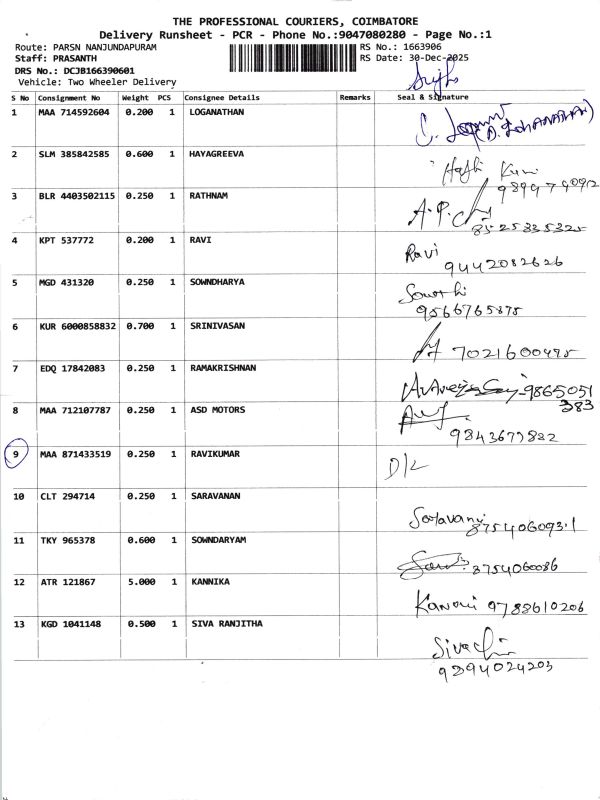 THE PROFESSIONAL COURIERS, COIMBATORE
Delivery Runsheet - PCR - Phone No.:9047080280 - Page No.:1
Route: PARSN NANJUNDAPURAM RS No.: 1663906
Staff: PRASANTH RS Date: 30-Dec-2025
DRS No.: DCJB166390601
Vehicle: Two Wheeler Delivery
S No Consignment No Weight PCS Consignee Details Remarks Seal & Signature
1 MAA 714592604 0.200 1 LOGANATHAN
2 SLM 385842585 0.600 1 HAYAGREEVA
3 BLR 4403502115 0.250 1 RATHNAM A.P.
8525335325
4 KPT 537772 0.200 1 RAVI Ravi
9442082626
5 MGD 431320 0.250 1 SOWNDHARYA
9566765875
6 KUR 6000858832 0.700 1 SRINIVASAN 7021600495
7 EDQ 17842083 0.250 1 RAMAKRISHNAN 9865051
383
8 MAA 712107787 0.250 1 ASD MOTORS
9843677822
9 MAA 871433519 0.250 1 RAVIKUMAR D/L
10 CLT 294714 0.250 1 SARAVANAN
8754060931
11 TKY 965378 0.600 1 SOWNDARYAM 8754060086
12 ATR 121867 5.000 1 KANNIKA 9788610206
13 KGD 1041148 0.500 1 SIVA RANJITHA
9894024203